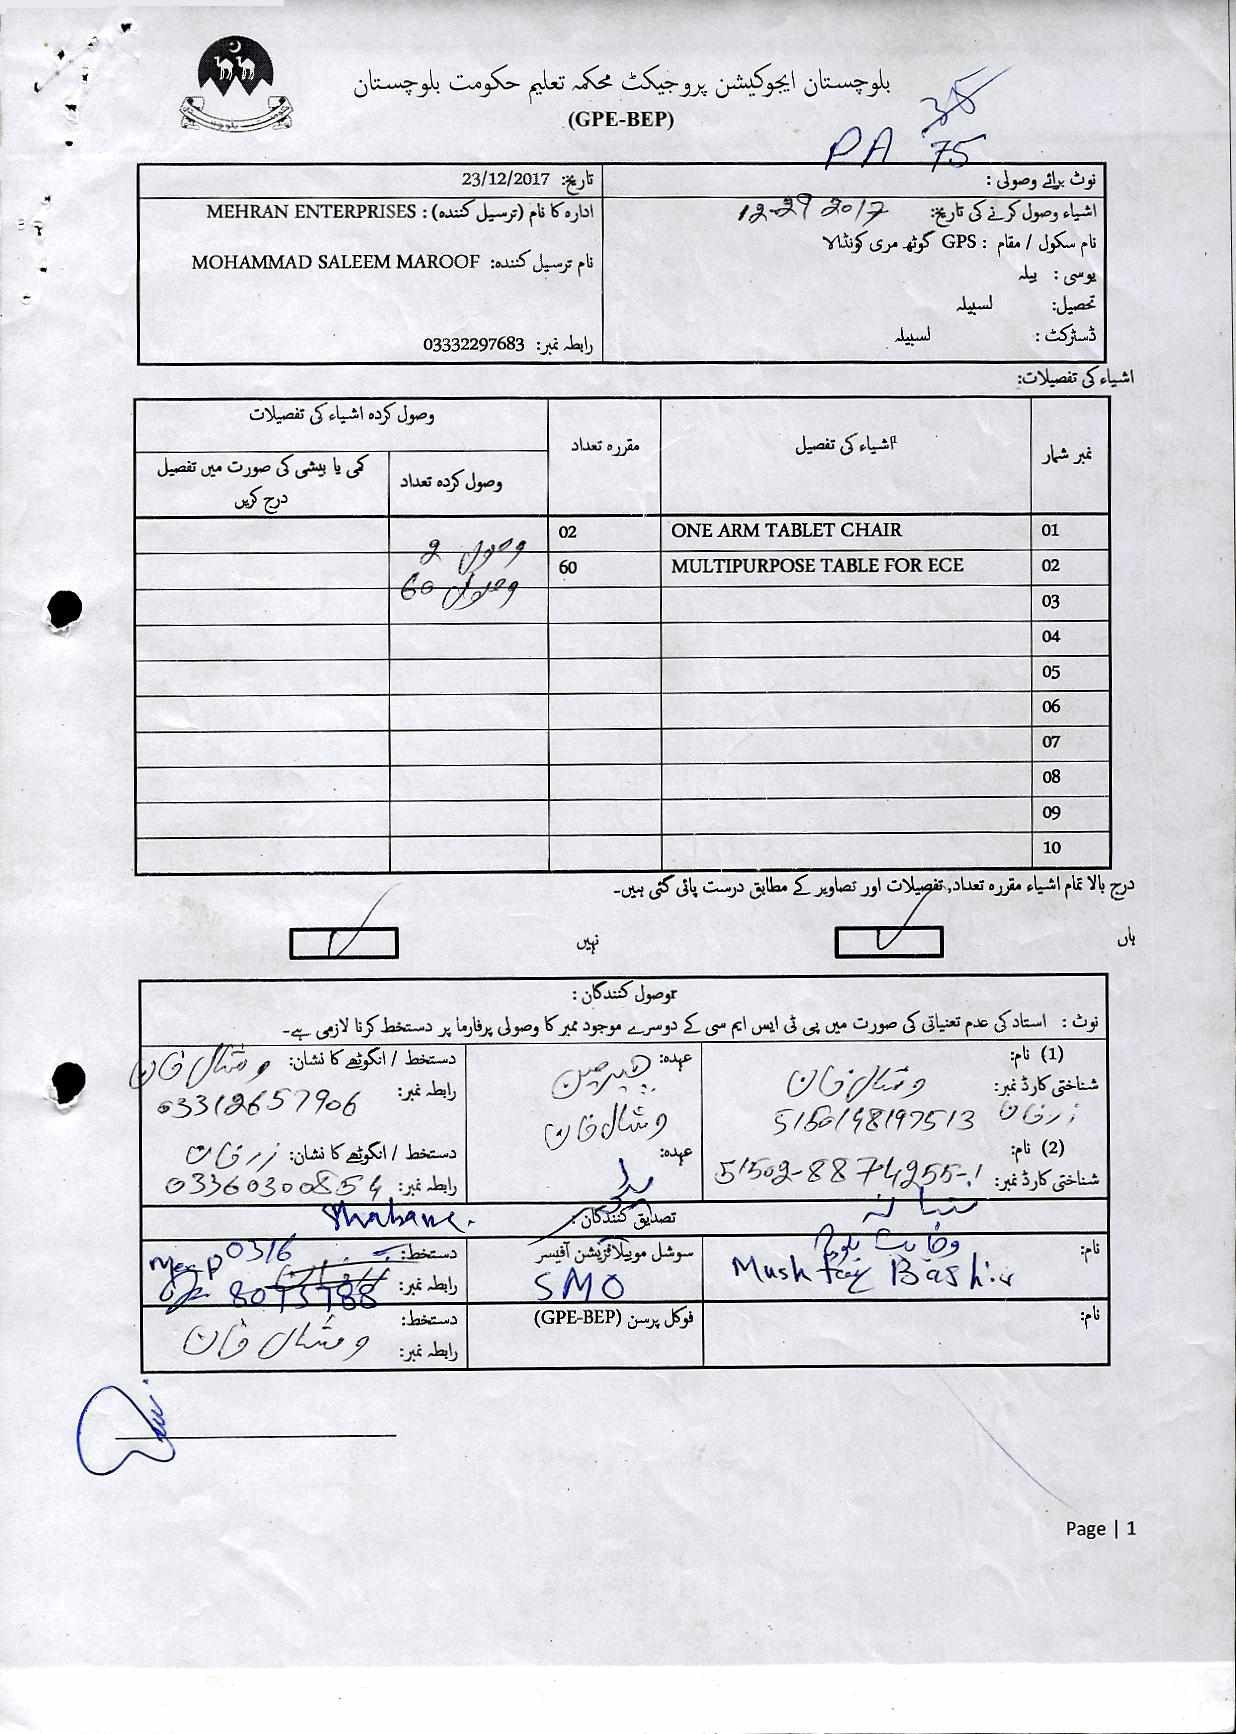 بلوچستان ایجوکیشن پروجیکٹ محکمہ تعلیم حکومت بلوچستان
(GPE-BEP)
38
PA 75
نوٹ برائے وصولی :
تاریخ: 23/12/2017
اشیاء وصول کرنے کی تاریخ: 12-29 2017
ادارہ کا نام (ترسیل کنندہ) : MEHRAN ENTERPRISES
نام سکول / مقام : GPS گوٹھ مری کونڈالا
نام ترسیل کنندہ: MOHAMMAD SALEEM MAROOF
یوسی : بیلہ
تحصیل: لسبیلہ
ڈسٹرکٹ : لسبیلہ
رابطہ نمبر: 03332297683
اشیاء کی تفصیلات:
نمبر شمار
اشیاء کی تفصیل
مقررہ تعداد
وصول کردہ اشیاء کی تفصیلات
وصول کردہ تعداد
کمی یا بیشی کی صورت میں تفصیل درج کریں
01 ONE ARM TABLET CHAIR 02 وصول 2
02 MULTIPURPOSE TABLE FOR ECE 60 وصول 60
03
04
05
06
07
08
09
10
درج بالا تمام اشیاء مقررہ تعداد, تفصیلات اور تصاویر کے مطابق درست پائی گئی ہیں۔
ہاں
نہیں
وصول کنندگان :
نوٹ : استاد کی عدم تعنیاتی کی صورت میں پی ٹی ایس ایم سی کے دوسرے موجود ممبر کا وصولی پرفارما پر دستخط کرنا لازمی ہے۔
(1) نام: وشال خان
عہدہ: چیرمین
دستخط / انگوٹھے کا نشان: وشال خان
شناختی کارڈ نمبر: 5150148197513
رابطہ نمبر: 03312657906
وشال خان
(2) نام: زرخان
عہدہ:
دستخط / انگوٹھے کا نشان: زرخان
شناختی کارڈ نمبر: 51502-8874255-1
رابطہ نمبر: 03360300854
تصدیق کنندگان :
Shabana
نام: Mushtaq Bashir
سوشل موبیلائزیشن آفیسر
SMO
دستخط: 0316
رابطہ نمبر: 8075788
نام:
فوکل پرسن (GPE-BEP)
دستخط: وشال خان
رابطہ نمبر:
Page | 1